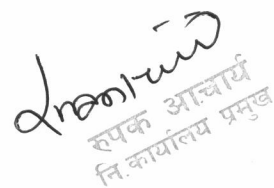 रुपक आचार्य
नि.कार्यालय प्रमुख